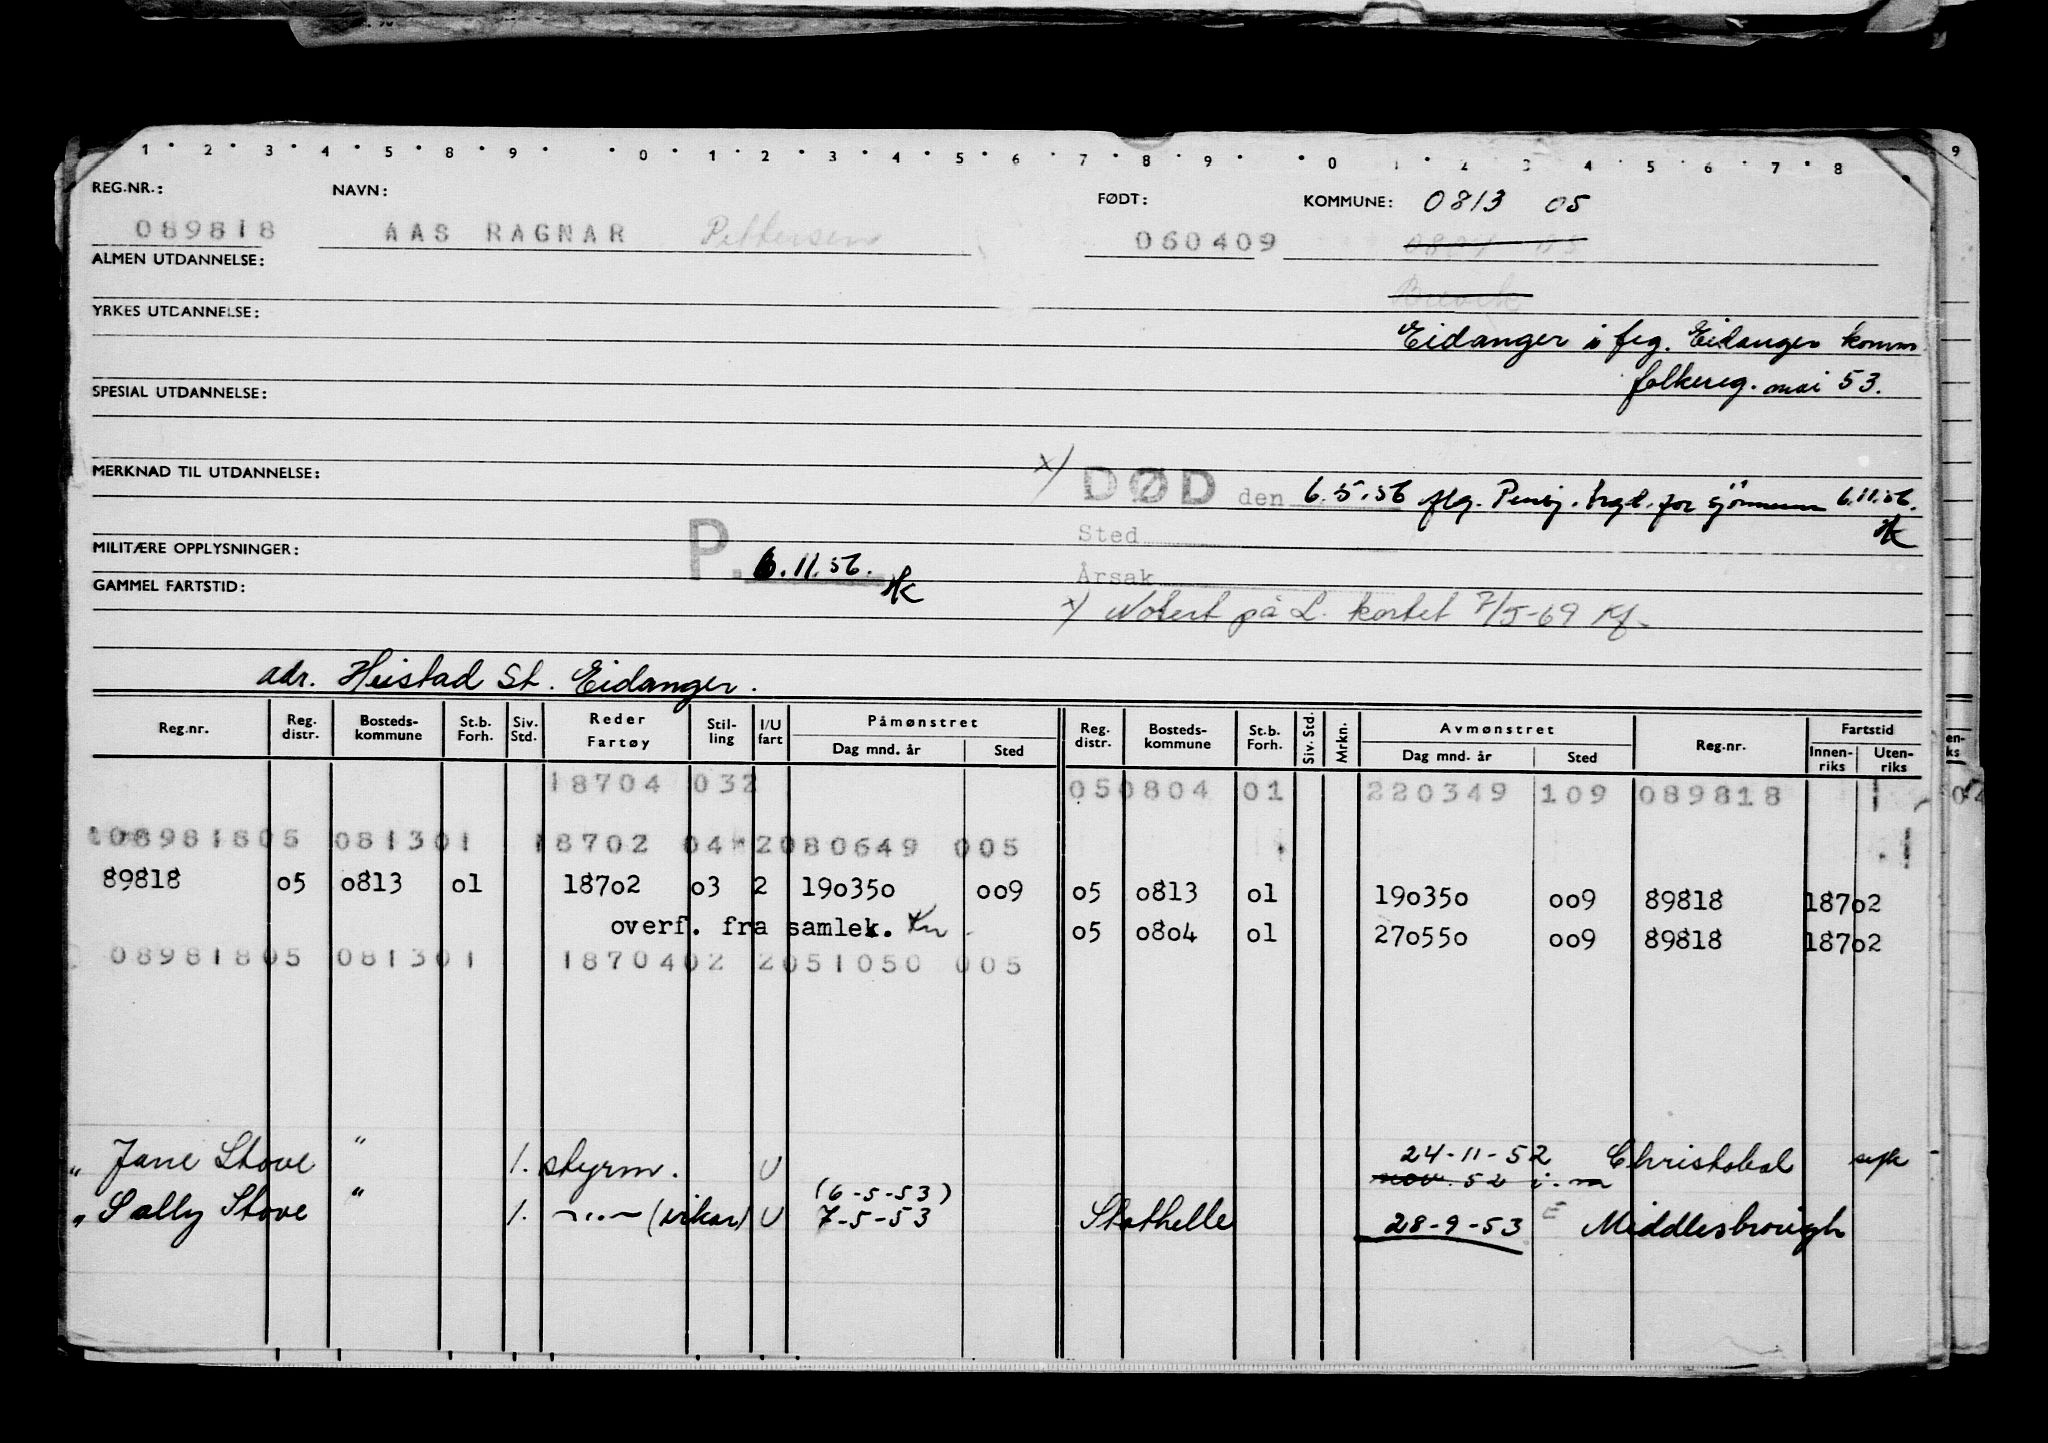 1 2 3 4 5 8 9 0 1 2 3 4 5 6 7 8 9 0 1 2 3 4 5 6 7 8
9
REG.NR.: NAVN: FØDT: KOMMUNE: 0813 05
089818 AAS RAGNAR Pettersen 060409 0804 05
ALMEN UTDANNELSE:
Brevik
YRKES UTDANNELSE:
Eidanger i flg. Eidanger komm.
folkereg. mai 53.
SPESIAL UTDANNELSE:
MERKNAD TIL UTDANNELSE:
x) DØD den 6.5.56 flg. Pensj. trgd. for sjömenn 6.11.56.
HK
Sted
MILITÆRE OPPLYSNINGER:
P. 6.11.56. HK
Årsak
GAMMEL FARTSTID:
x) Notert på L. kortet 7/5-69 Kf.
adr. Heistad St. Eidanger.
Reg.nr. Reg. distr. Bosteds-kommune St.b. Forh. Siv. Std. Reder Fartøy Stil-ling I/U fart Påmønstret Dag mnd. år Sted Reg. distr. Bosteds-kommune St.b. Forh. Siv. Std. Mrkn. Avmønstret Dag mnd. år Sted Reg.nr. Fartstid Innen-riks Uten-riks
18704 032 050804 01 220349 109 089818
08981805 081301 18702 04 2080649 005
89818 05 0813 01 18702 03 2 190350 009 05 0813 01 190350 009 89818 18702
overf. fra samlek. Kn 05 0804 01 270550 009 89818 18702
08981805 081301 1870402 2051050 005
" Jane Stove " 1. styrm. U 24-11-52 Christobal syk
nov. 52 i. m
(6-5-53)
" Sally Stove " 1. -"- (vikar) U 7-5-53 Stathelle 28-9-53 E Middlesbrough